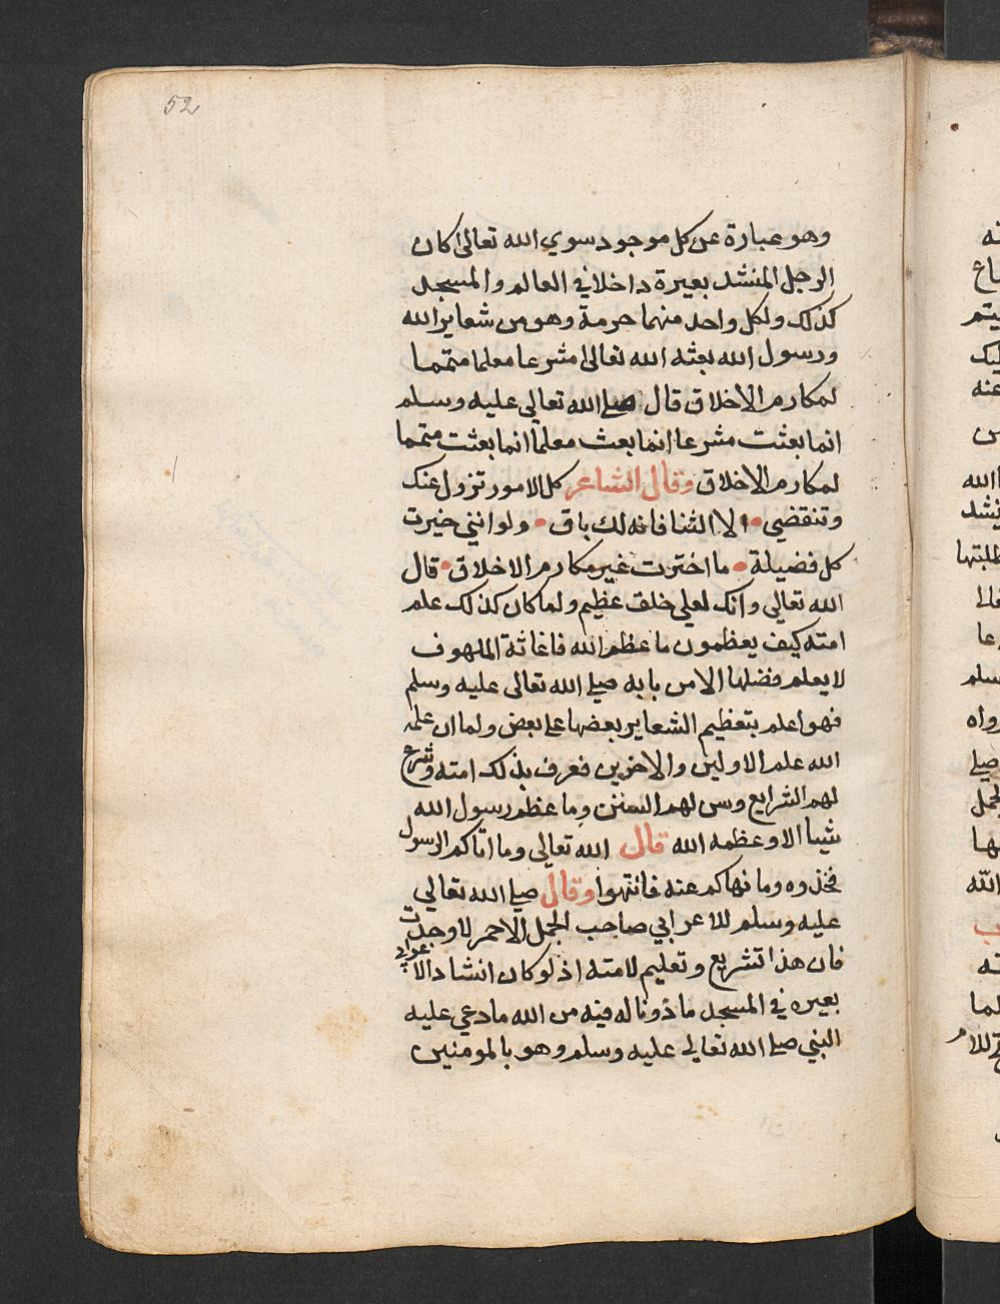 52
وهو عبارة عن كل موجود سوي الله تعالى اكان
الرجل المنشد بعيرة داخلا في العالم والمسجد
كذلك ولكل واحد منهما حرمة وهو من شعاير الله
ورسول الله بعثه الله تعالى مشرعا معلما متمما
لمكارم الاخلاق قال صلى الله تعالى عليه وسلم
انما بعثت مشرعا انما بعثت معلما انما بعثت متمما
لمكارم الاخلاق وقال الشاعر كل الامور تزول عنك
وتنقضي • الا الثنا فانه لك باق • ولو انني خيرت
كل فضيلة • ما اخترت غير مكارم الاخلاق • قال
الله تعالى وانك لعلى خلق عظيم ولما كان كذلك علم
امته كيف يعظمون ما عظم الله فاغاثة الملهوف
لا يعلم فضلها الا من بابه صلى الله تعالى عليه وسلم
فهو اعلم بتعظيم الشعاير بعضها على بعض ولما ان علمه
الله علم الاولين والاخرين فعرف بذلك امته وشرع
لهم الشرايع وسن لهم السنن وما عظم رسول الله
شيا الا وعظمه الله قال الله تعالى وما اتاكم الرسول
فخذوه وما نهاكم عنه فانتهوا وقال صلى الله تعالي
عليه وسلم للاعرابي صاحب الجمل الاحمر لا وجدت
فان هذا تشريع وتعليم لامته اذ لو كان انشاد الاعرابي
بعيره في المسجد ماذونا له فيه من الله ما دعي عليه
النبي صلى الله تعالى عليه وسلم وهو بالمومنين